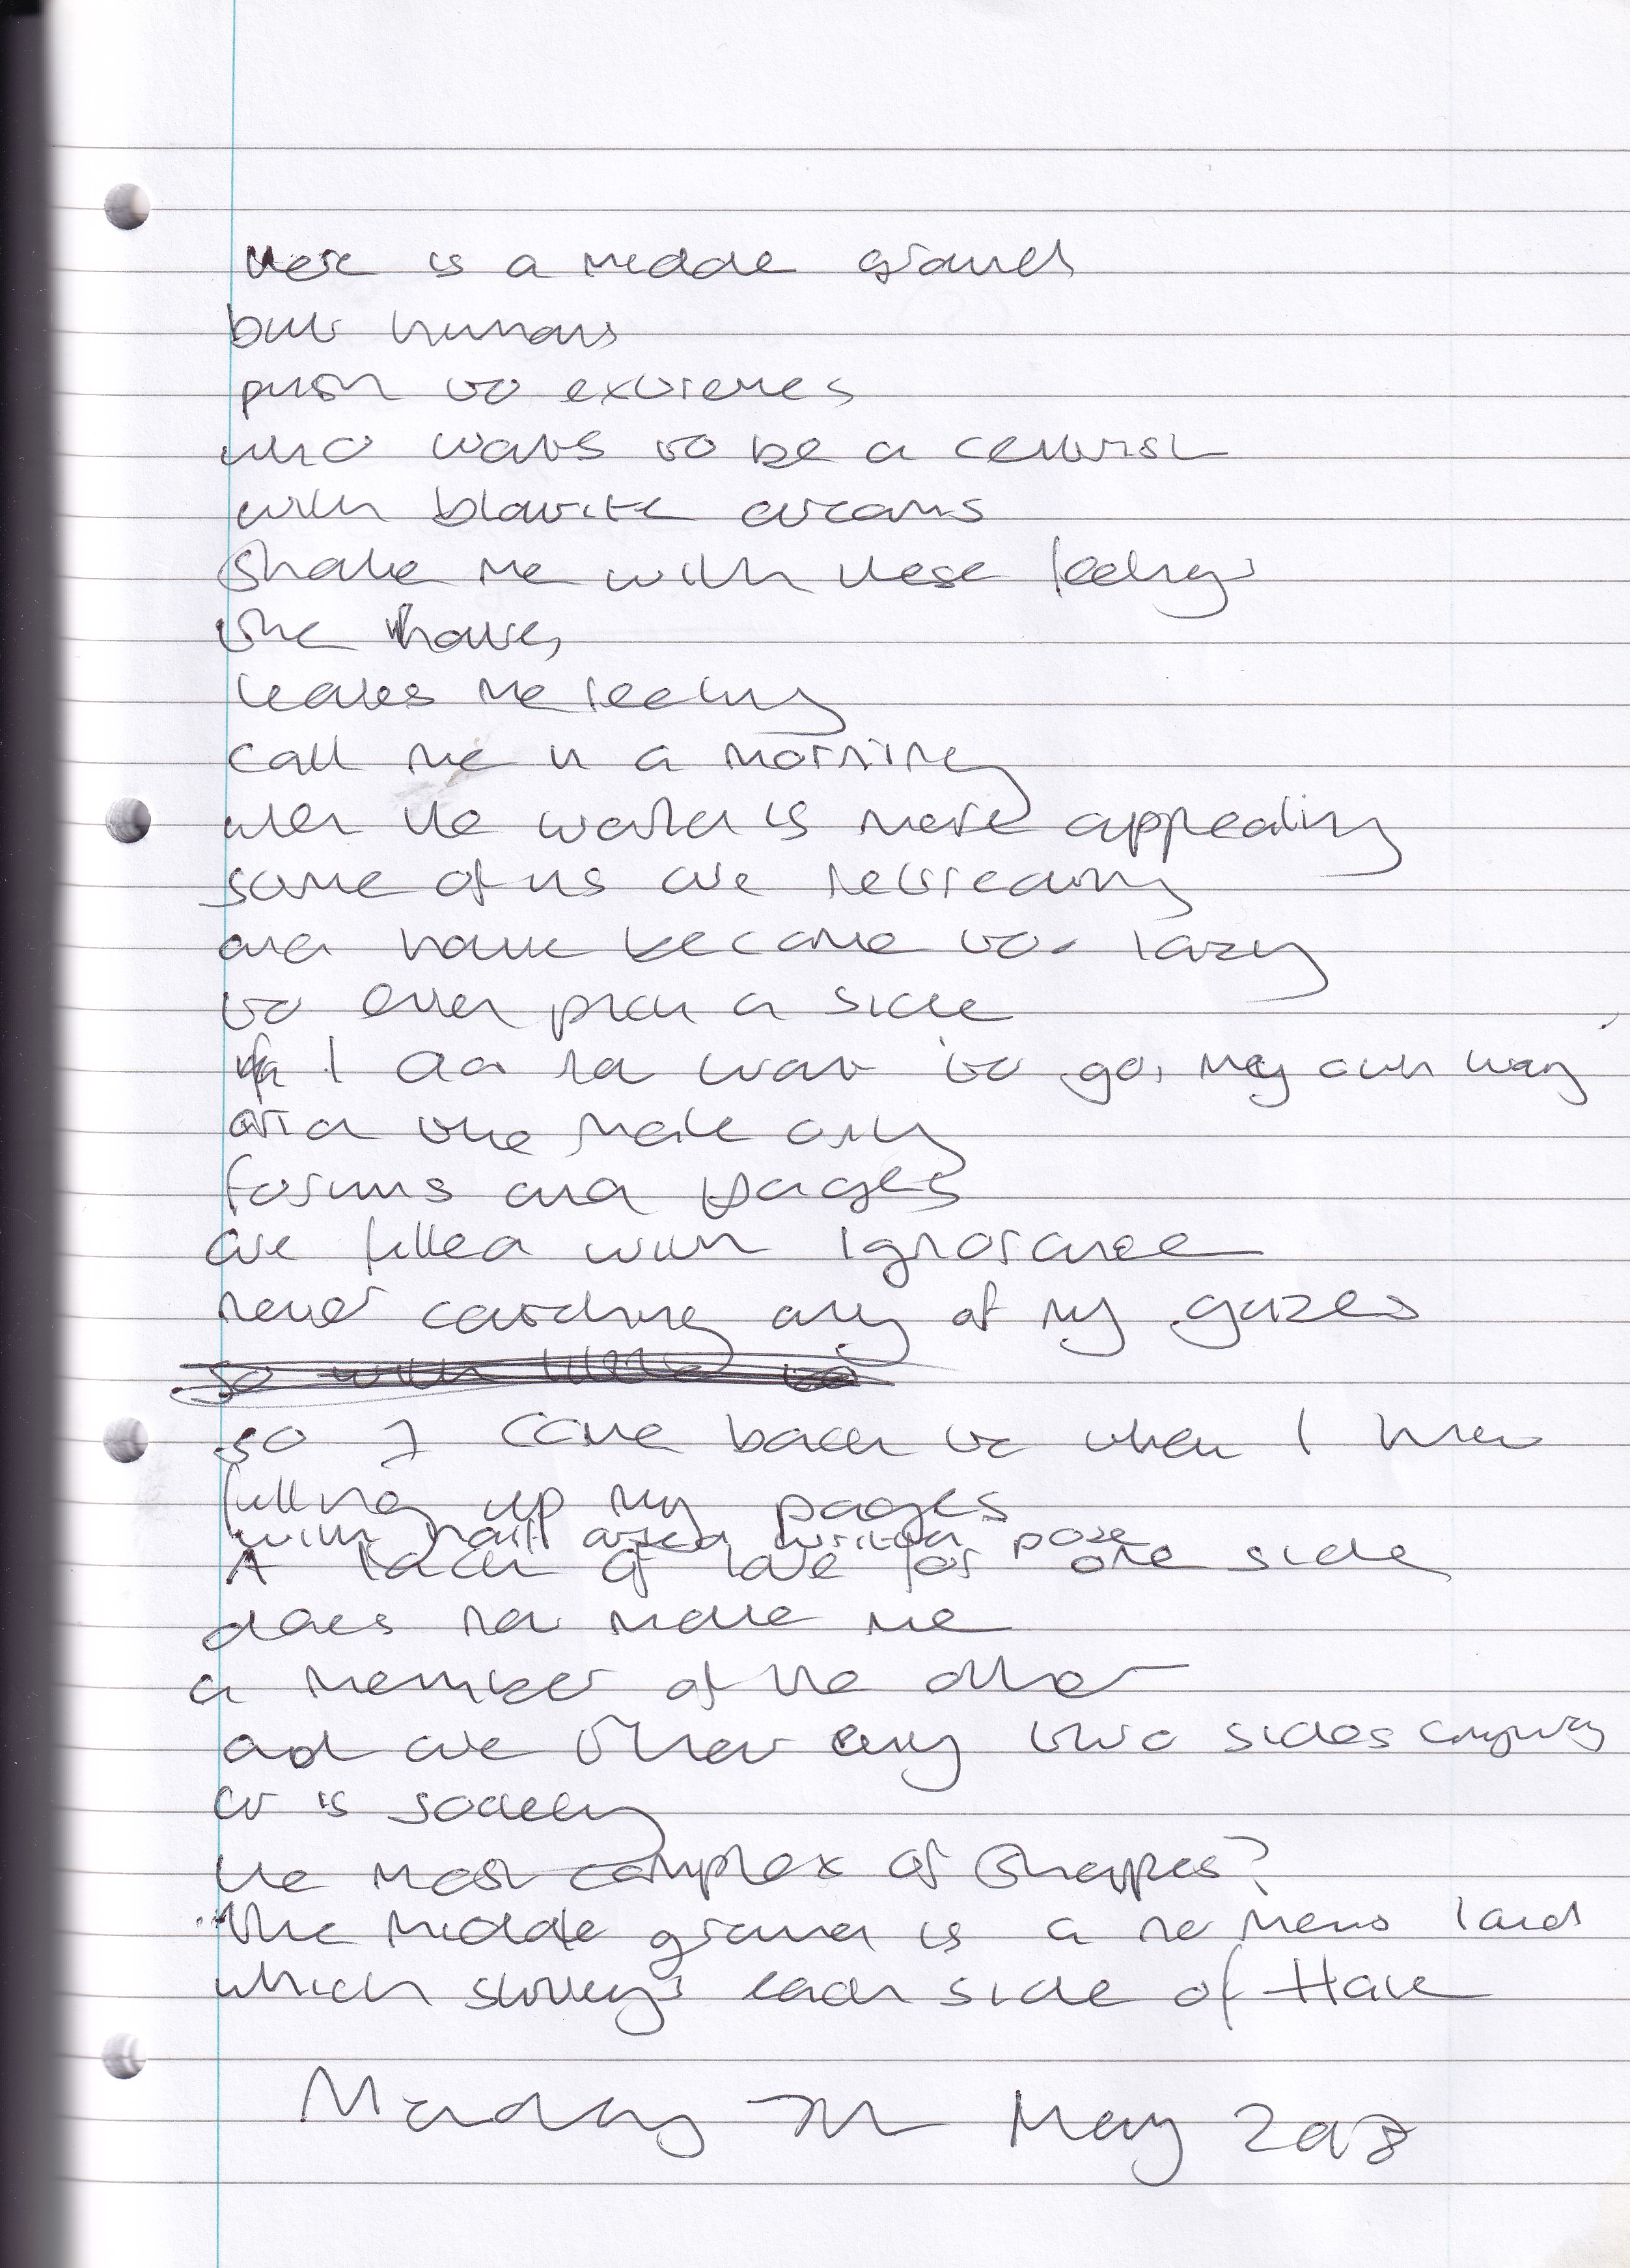 there is a middle ground
but humans
push to extremes
who wants to be a centrist
with blairite dreams
shake me with these feelings
she
leaves me reeling
call me in a morning
when the world is more appealing
some of us are retreating
and have become too lazy
to even pick a side
I do not want to go my own way
and the only
forums and pages
are filled with ignorance
never catching any of my gazes
so with little to
so I come back to when I knew
filling up my pages
with half arsed written
A lack of love for one side
does not make me
a member of the other
and are there any two sides anyway
or is society
the most complex of shapes?
the middle ground is a no mens land
which each side of Hate
Monday 7th May 2018